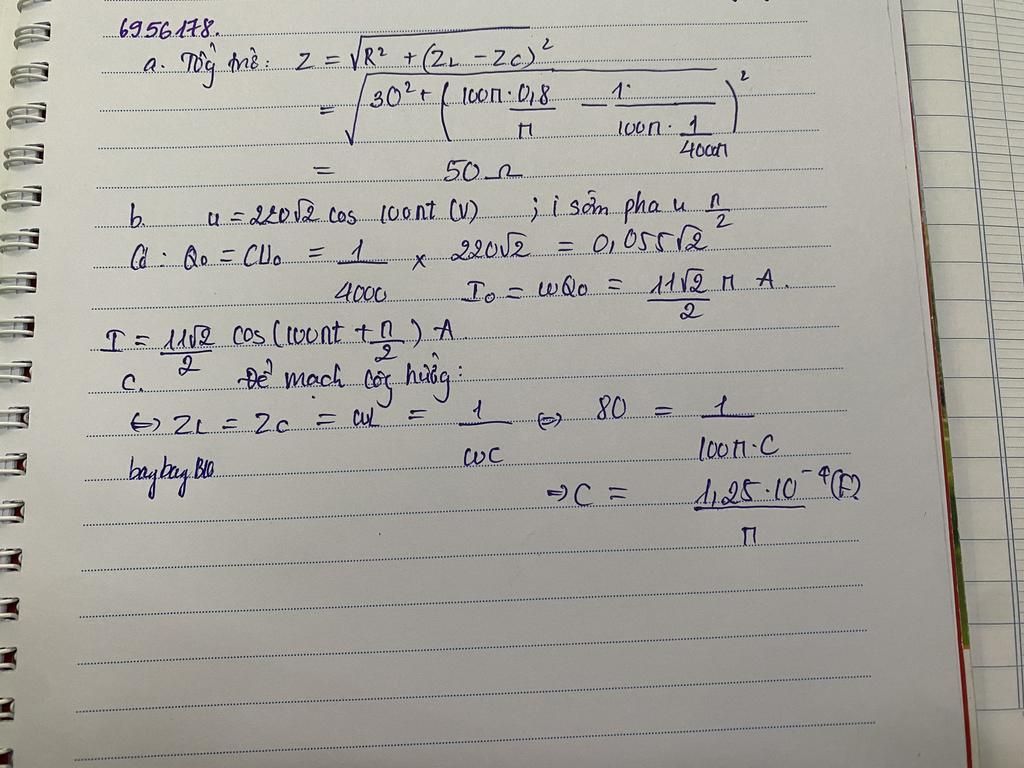 6956178.
a. Tổg trở: Z = √(R² + (ZL - ZC)²)
= √(30² + (100π · 0,8/π - 1/(100π · 1/4000π))²)
= 50 Ω
b. u = 220√2 cos 100πt (V) ; i sớm pha u π/2
Có : Q₀ = CU₀ = 1/4000 × 220√2 = 0,055√2
I₀ = ωQ₀ = 11√2/2 π A.
I = 11√2/2 cos(100πt + π/2) A
c. Để mạch cộg hưởg:
⇔ ZL = ZC = ωL = 1/ωC ⇔ 80 = 1/100π·C
baybayBlo
⇒ C = 1,25·10⁻⁴/π (F)